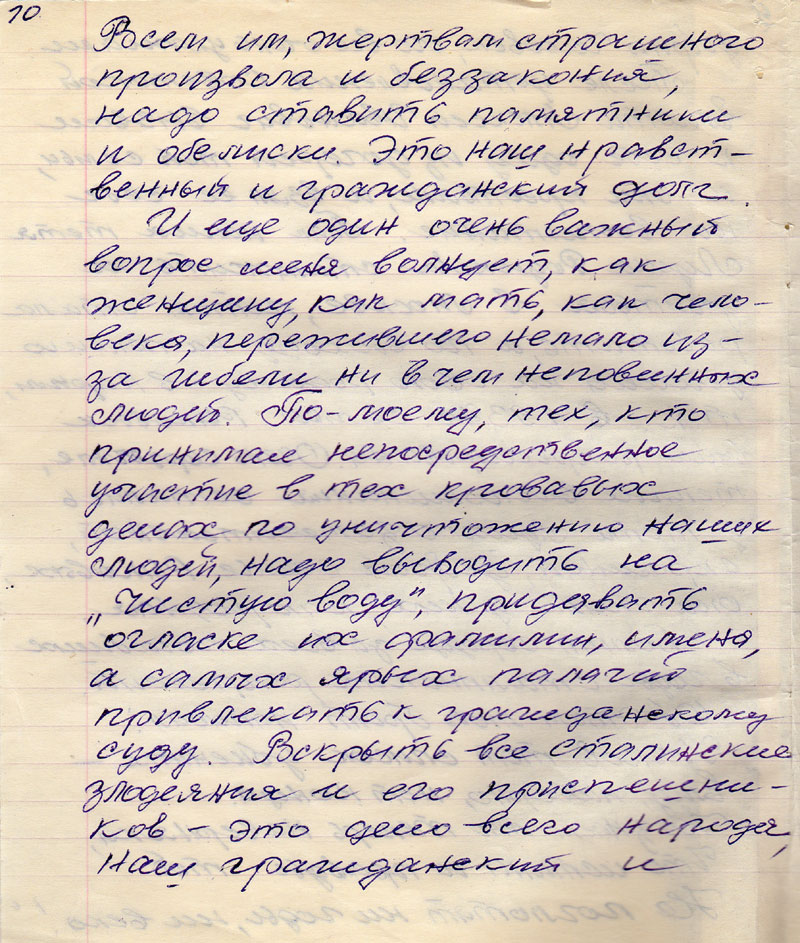 10
Всем им, жертвам страшного
произвола и беззакония,
надо ставить памятники
и обелиски. Это наш нравст-
венный и гражданский долг.
И еще один очень важный
вопрос меня волнует, как
женщину, как мать, как чело-
века, пережившего немало из-
за гибели ни в чем неповинных
людей. По-моему, тех, кто
принимал непосредственное
участие в тех кровавых
делах по уничтожению наших
людей, надо выводить на
„чистую воду", придавать
огласке их фамилии, имена,
а самых ярых палачей
привлекать к гражданскому
суду. Вскрыть все сталинские
злодеяния и его приспешни-
ков - это дело всего народа,
наш гражданский и